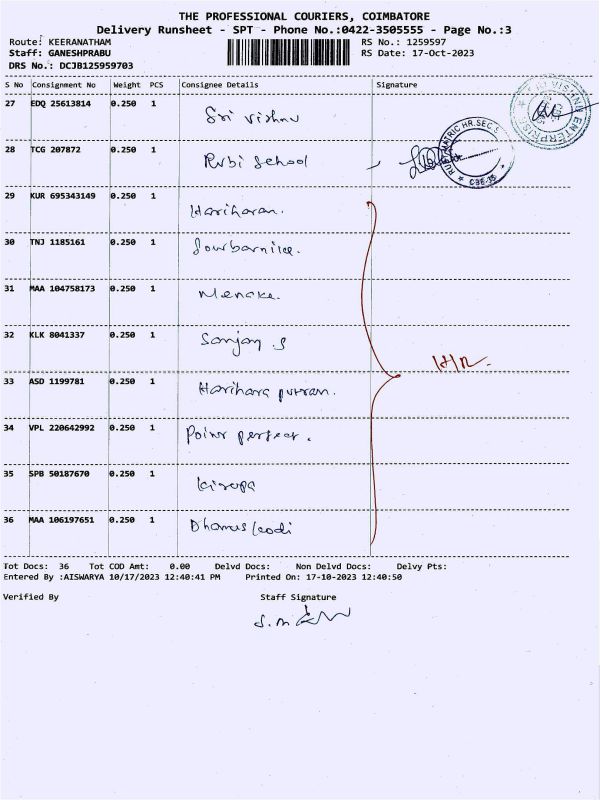 THE PROFESSIONAL COURIERS, COIMBATORE
Delivery Runsheet - SPT - Phone No.:0422-3505555 - Page No.:3
Route: KEERANATHAM RS No.: 1259597
Staff: GANESHPRABU RS Date: 17-Oct-2023
DRS No.: DCJB125959703
S No Consignment No Weight PCS Consignee Details Signature
27 EDQ 25613814 0.250 1 Sri Vishnu
28 TCG 207872 0.250 1 Rubi School
29 KUR 695343149 0.250 1 Hariharan.
30 TNJ 1185161 0.250 1 Sowbarnika.
31 MAA 104758173 0.250 1 Menaka.
32 KLK 8041337 0.250 1 Sanjay .S
33 ASD 1199781 0.250 1 Harihara putran.
34 VPL 220642992 0.250 1 Point perfect.
35 SPB 50187670 0.250 1 kirupa
36 MAA 106197651 0.250 1 Dhanuskodi
Tot Docs: 36 Tot COD Amt: 0.00 Delvd Docs: Non Delvd Docs: Delvy Pts:
Entered By :AISWARYA 10/17/2023 12:40:41 PM Printed On: 17-10-2023 12:40:50
Verified By Staff Signature